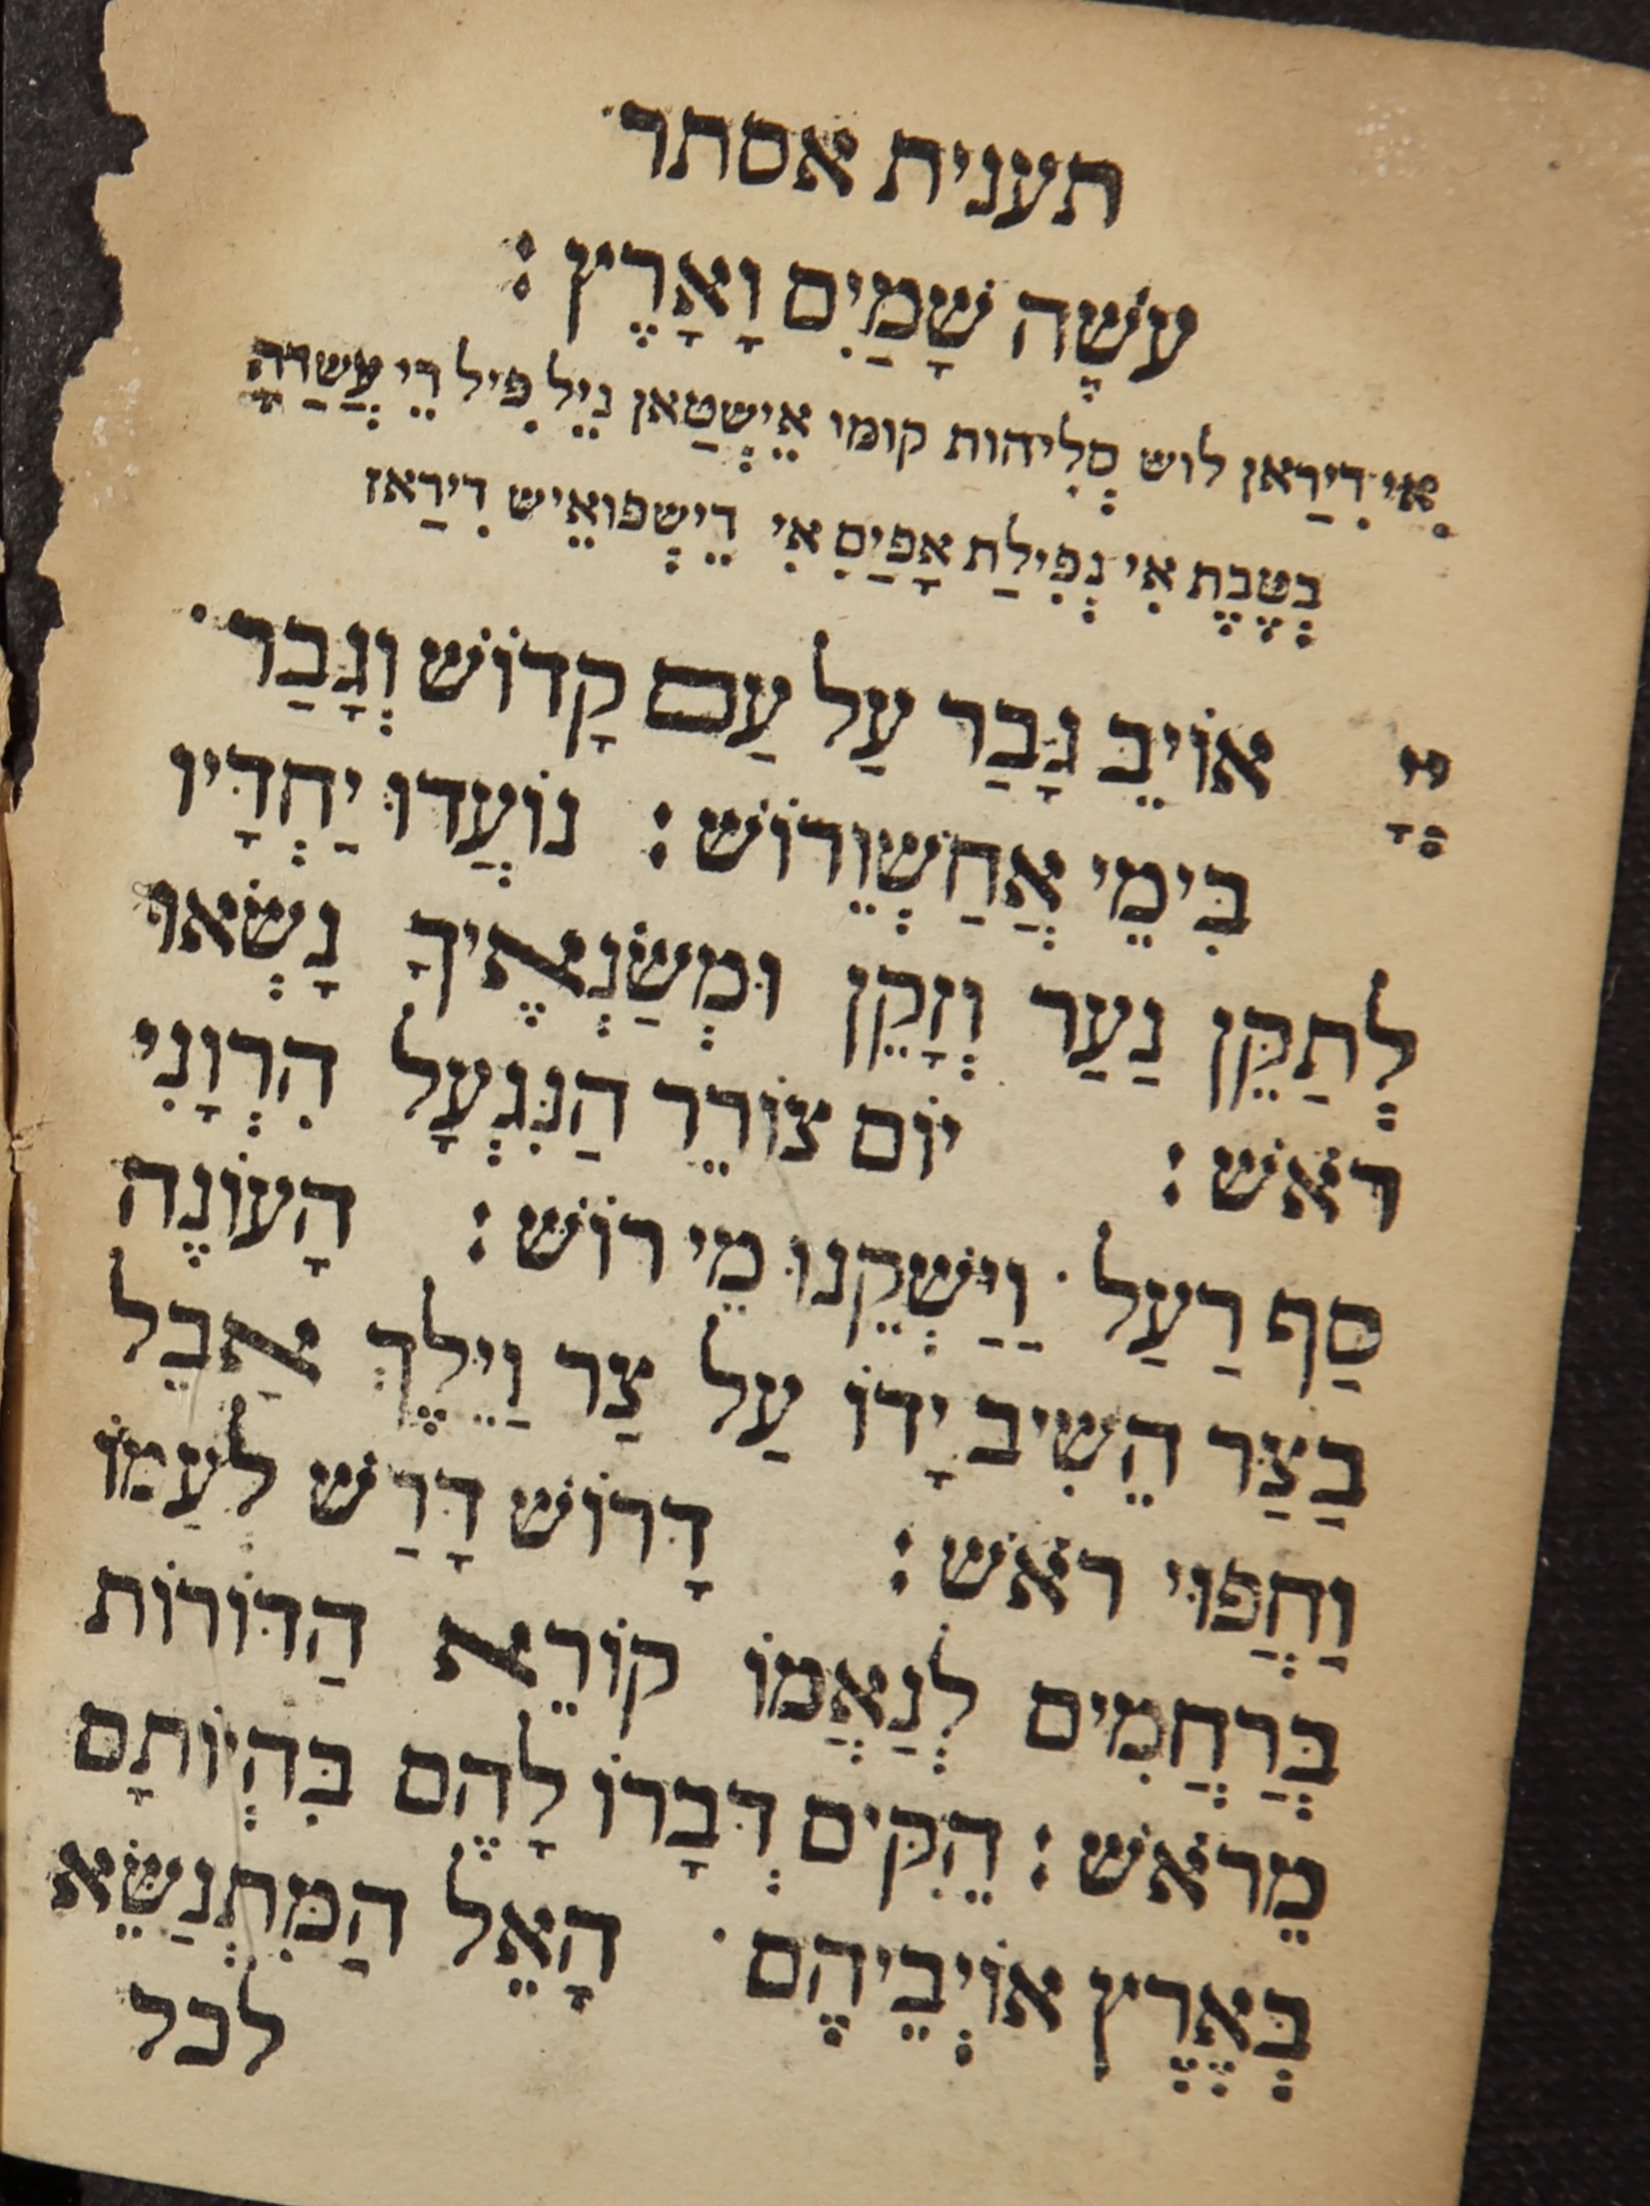 תענית אסתר·
עֹשֶׂה שָׁמַיִם וָאָרֶץ :
אִי דִירַאן לוש סְלִיהות קומו אֵישְטַאן נֵיל פִיל דֵי עֲשַׂרַה
בְּטֶבֶת אִי נְפִילַת אָפַּיִם אִי דֵישְפּואֵיש דִירַאז
אוֹיֵב גָּבַר עַל עַם קָדוֹשׁ וְגָבַר·
בִּימֵי אֲחַשְׁוֵרוֹשׁ : נוֹעֲדוּ יַחְדָּיו
לְתַקֵּן נַעַר וְזָקֵן וּמְשַׂנְאֶיךָ נָשְׂאוּ
רֹאשׁ : יוֹם צוֹרֵר הַנִּגְעָל הִרְוָנִי
סַף רַעַל· וַיַּשְׁקֵנוּ מֵי רוֹשׁ : הָעוֹנֶה
בַצַּר הֵשִׁיב יָדוֹ עַל צַר וַיֵּלֶךְ אָבֵל
וַחֲפוּי רֹאשׁ : דָּרוֹשׁ דָּרַשׁ לְעַמּוֹ
בְּרַחֲמִים לְנַאֲמוֹ קוֹרֵא הַדּוֹרוֹת
מֵרֹאשׁ : הֵקִים דְּבָרוֹ לָהֶם בִּהְיוֹתָם
בְּאֶרֶץ אוֹיְבֵיהֶם· הָאֵל הַמִּתְנַשֵּׂא
לכל